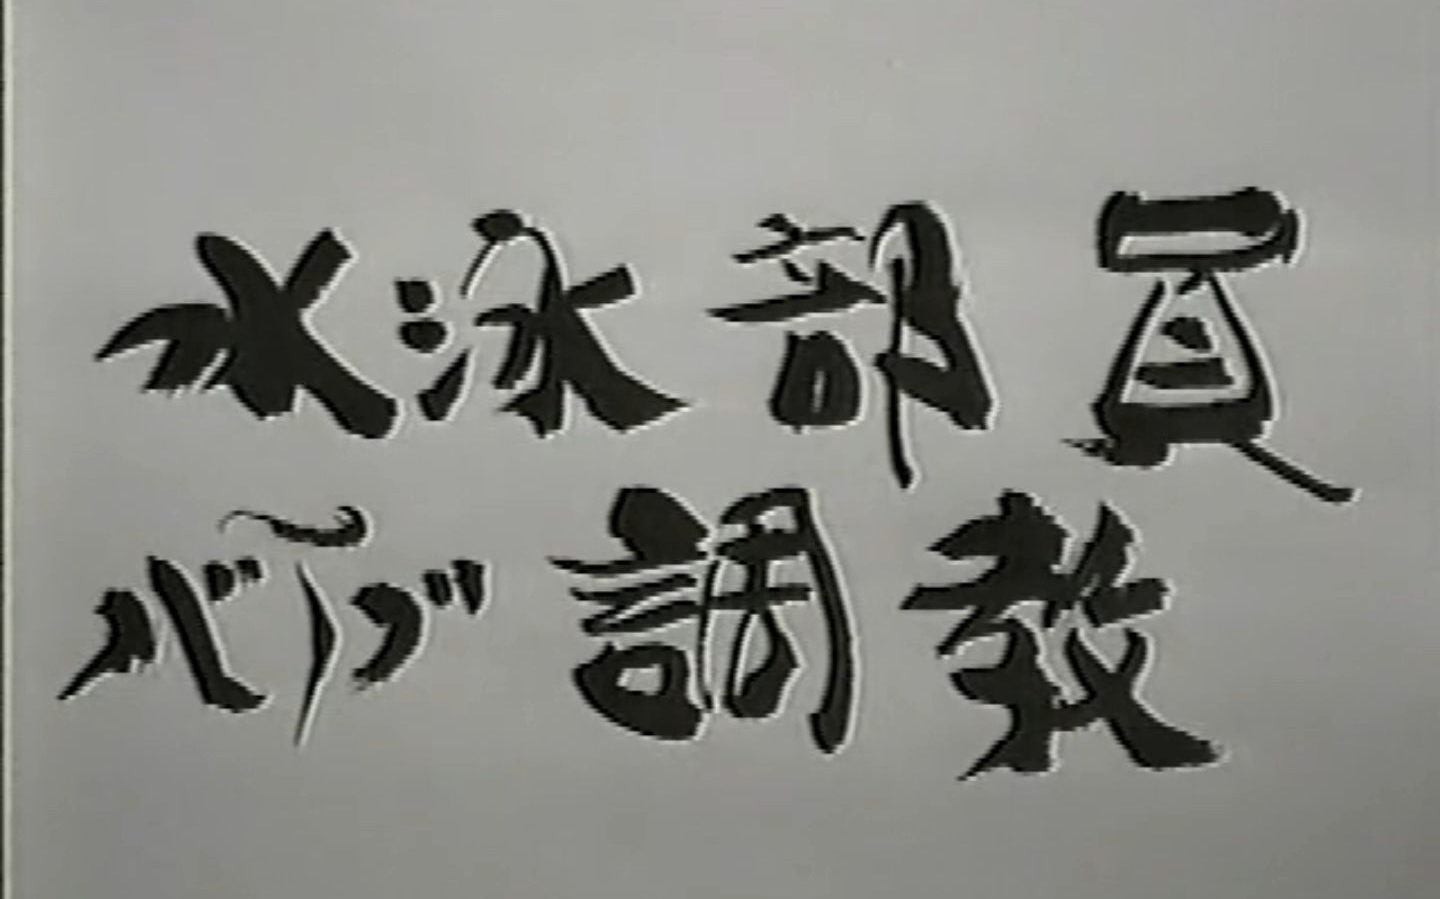 水泳部員
バイブ調教